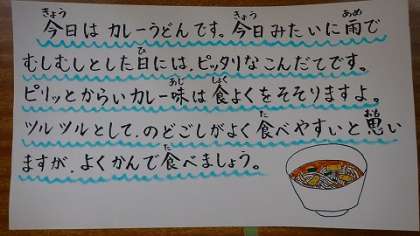 今日は カレーうどんです。今日みたいに雨で
むしむしとした日には、ピッタリなこんだてです。
ピリッとからいカレー味は食よくをそそりますよ。
ツルツルとして、のどごしがよく食べやすいと思い
ますが、よくかんで食べましょう。